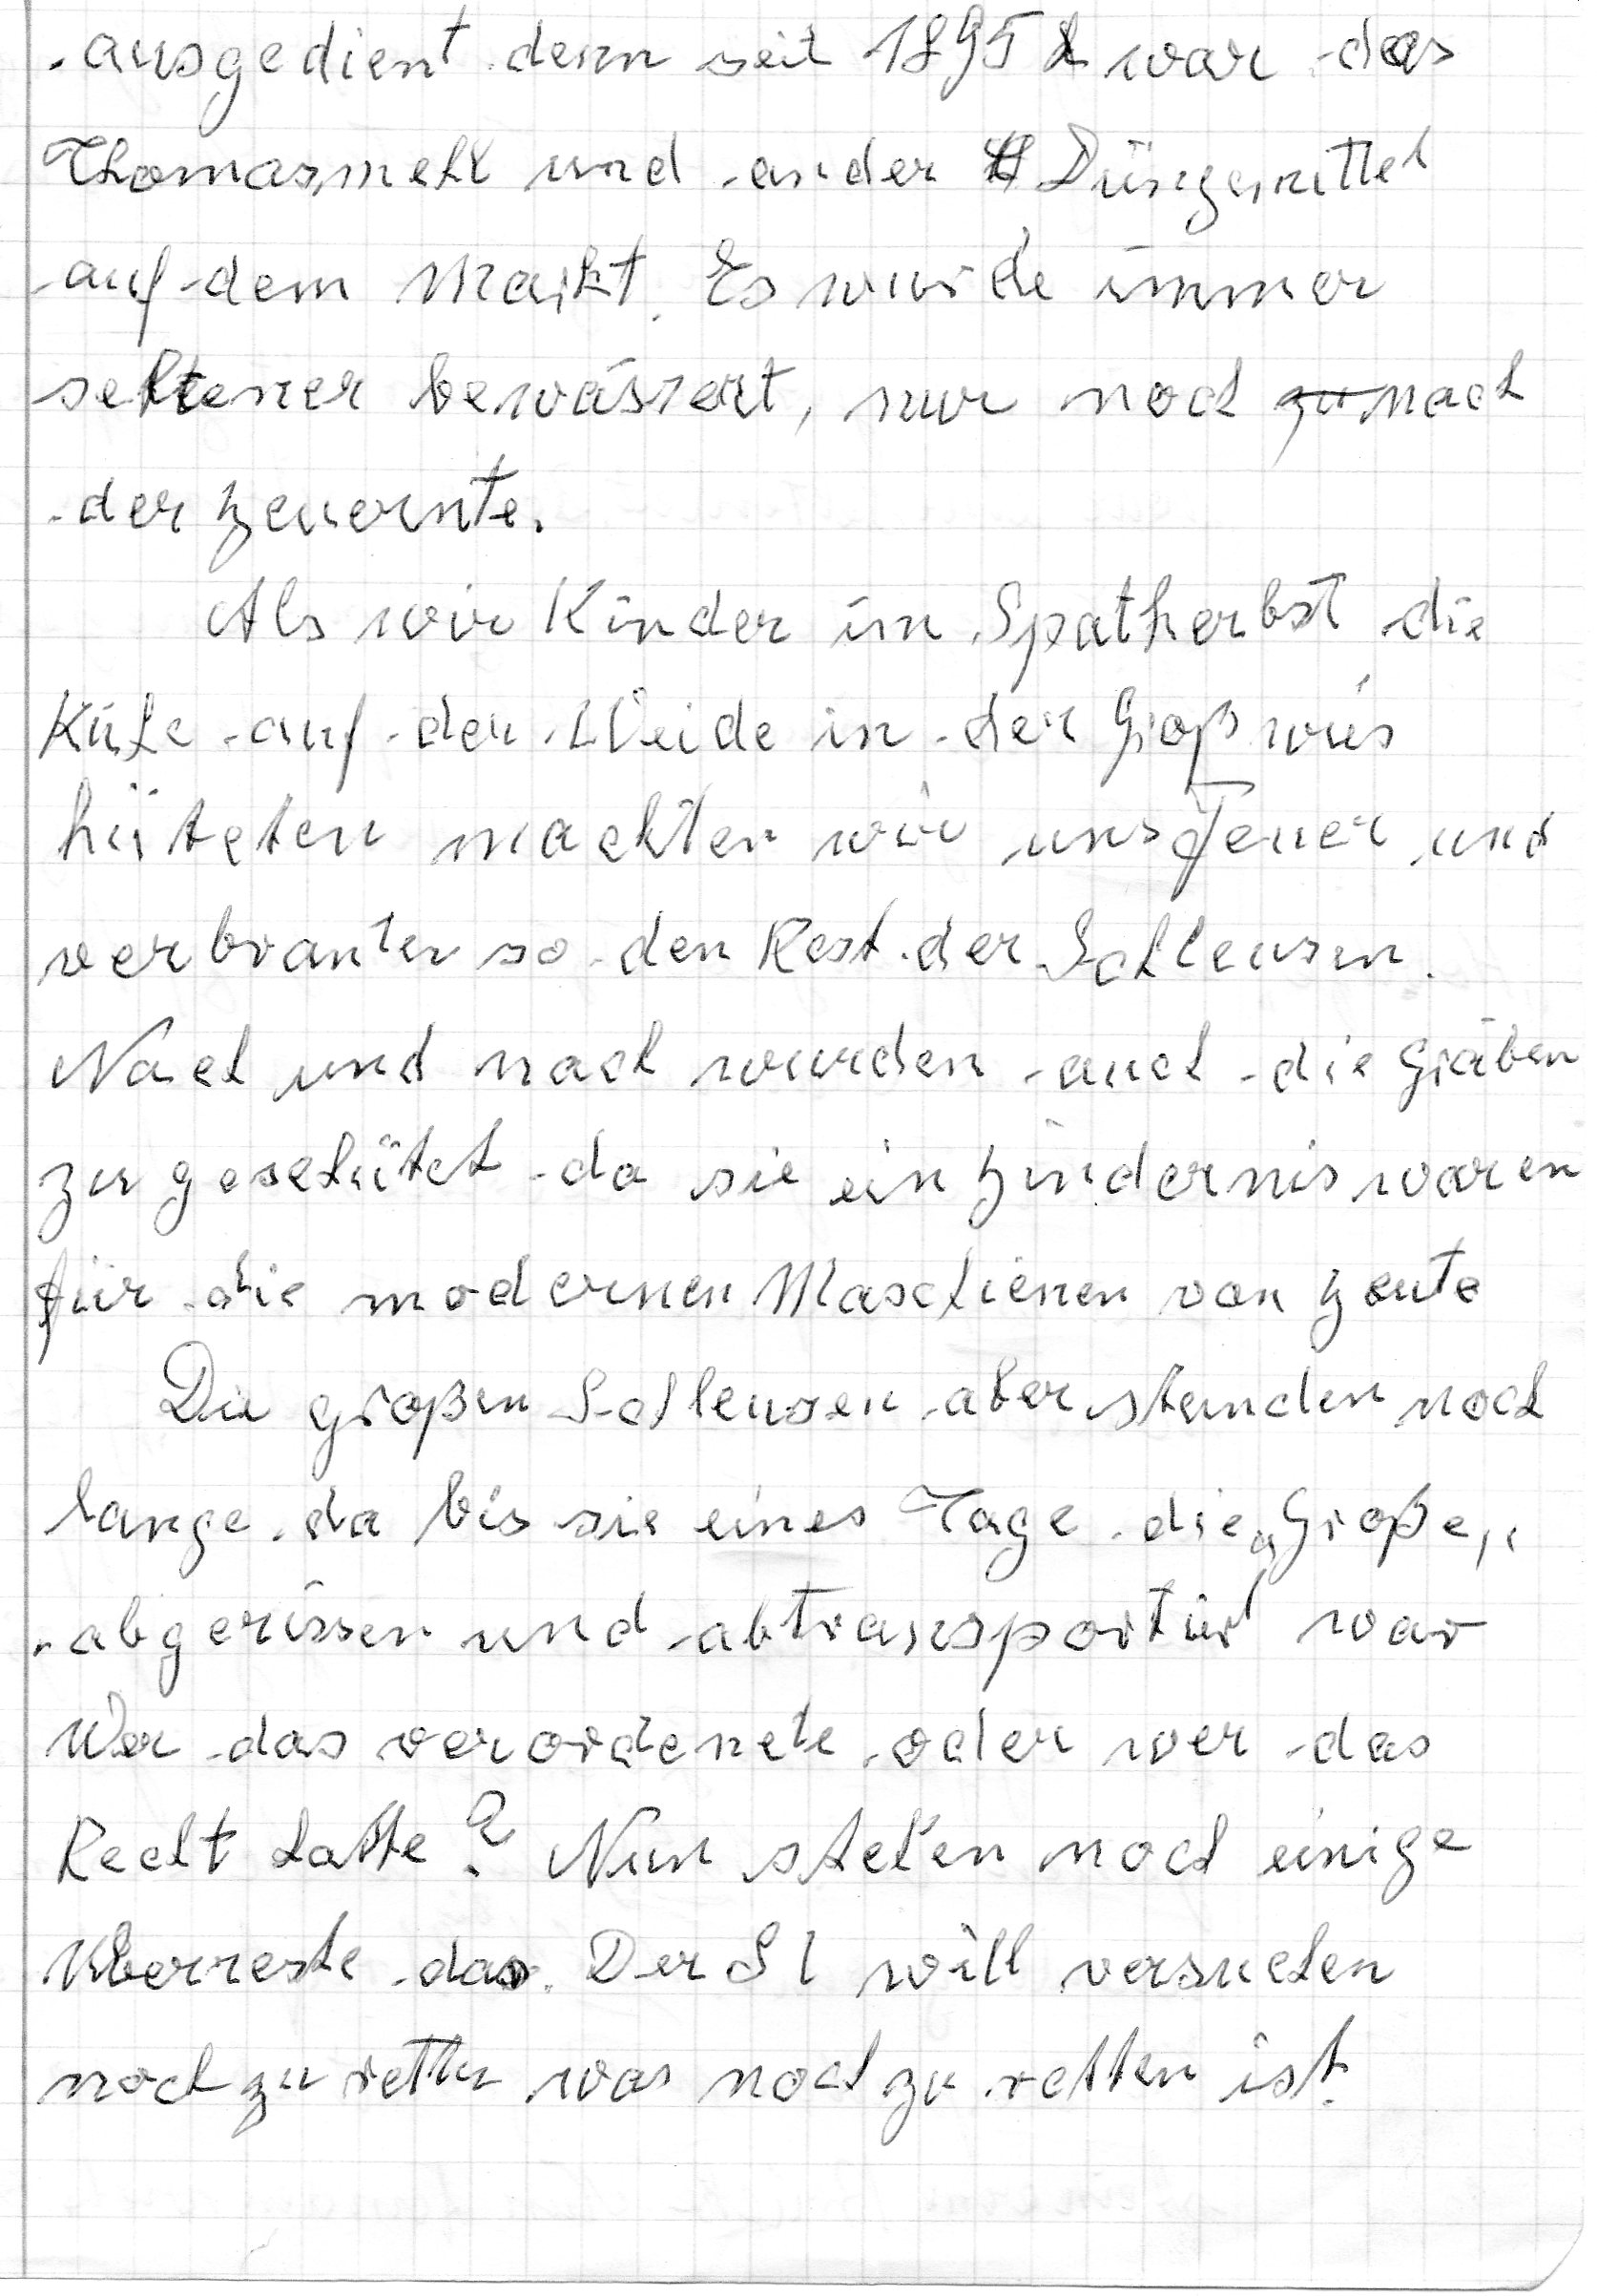 ausgedient denn seit 1895 war das
Thomasmehl und ander Düngemittel
auf dem Markt. Es wurde immer
seltener bewässert, nur noch zu nach
der Heuernte.
Als wir Kinder im Spatherbst die
Kühe auf der Weide in der Großwies
hüteten machten wir uns Feuer und
verbranten so den Rest der Schleusen.
Nach und nach wurden auch die Gräben
zu geschütet da sie ein Hindernis waren
für die modernen Maschienen von Heute
Die großen Schleusen aber standen noch
lange da bis sie eines Tage die „Große„
abgerissen und abtransportiert war
Wer das verordenete oder wer das
Recht hatte? Nun stehen noch einige
Uberreste da. Der SL will versuchen
noch zu retten was noch zu retten ist.